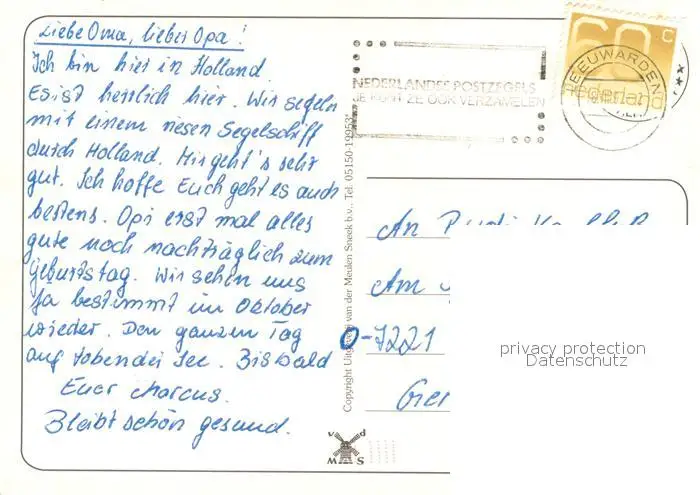 Liebe Oma, lieber Opa!
Ich bin hier in Holland.
Es ist herrlich hier. Wir segeln
mit einem riesen Segelschiff
durch Holland. Mir geht's sehr
gut. Ich hoffe Euch geht es auch
bestens. Opi erst mal alles
gute noch nachträglich zum
Geburtstag. Wir sehen uns
ja bestimmt im Oktober
wieder. Den ganzen Tag
auf tobender See. Bis bald
Euer Marcus.
Bleibt schön gesund.
NEDERLANDSE POSTZEGELS
JE KUNT ZE OOK VERZAMELEN
60 c
nederland
LEEUWARDEN
Copyright Uitgeverij van der Meulen Sneek b.v., Tel. 05150-19953
An
Am
0-7221
Ger
privacy protection
Datenschutz
v d
M S